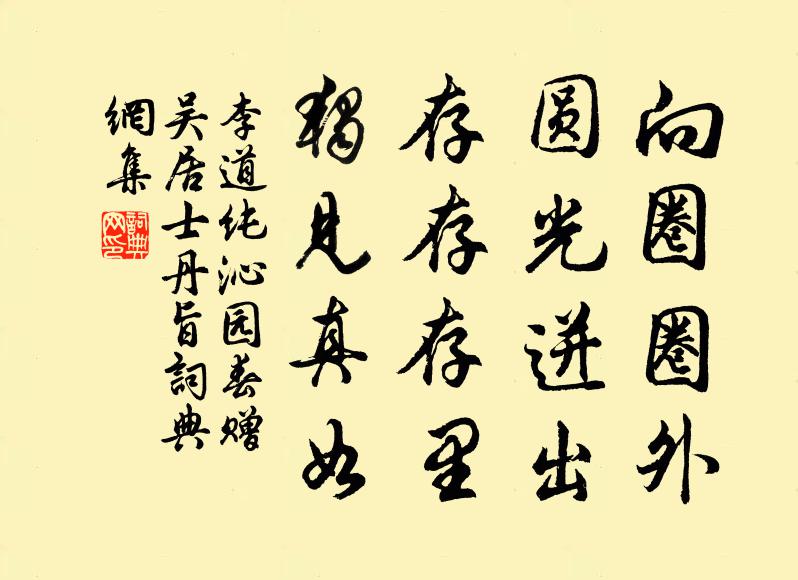 向圈圈外
圆光迸出
存存存里
独见真如
李道纯沁园春赠
吴居士丹旨詞典
網集
詞典网印